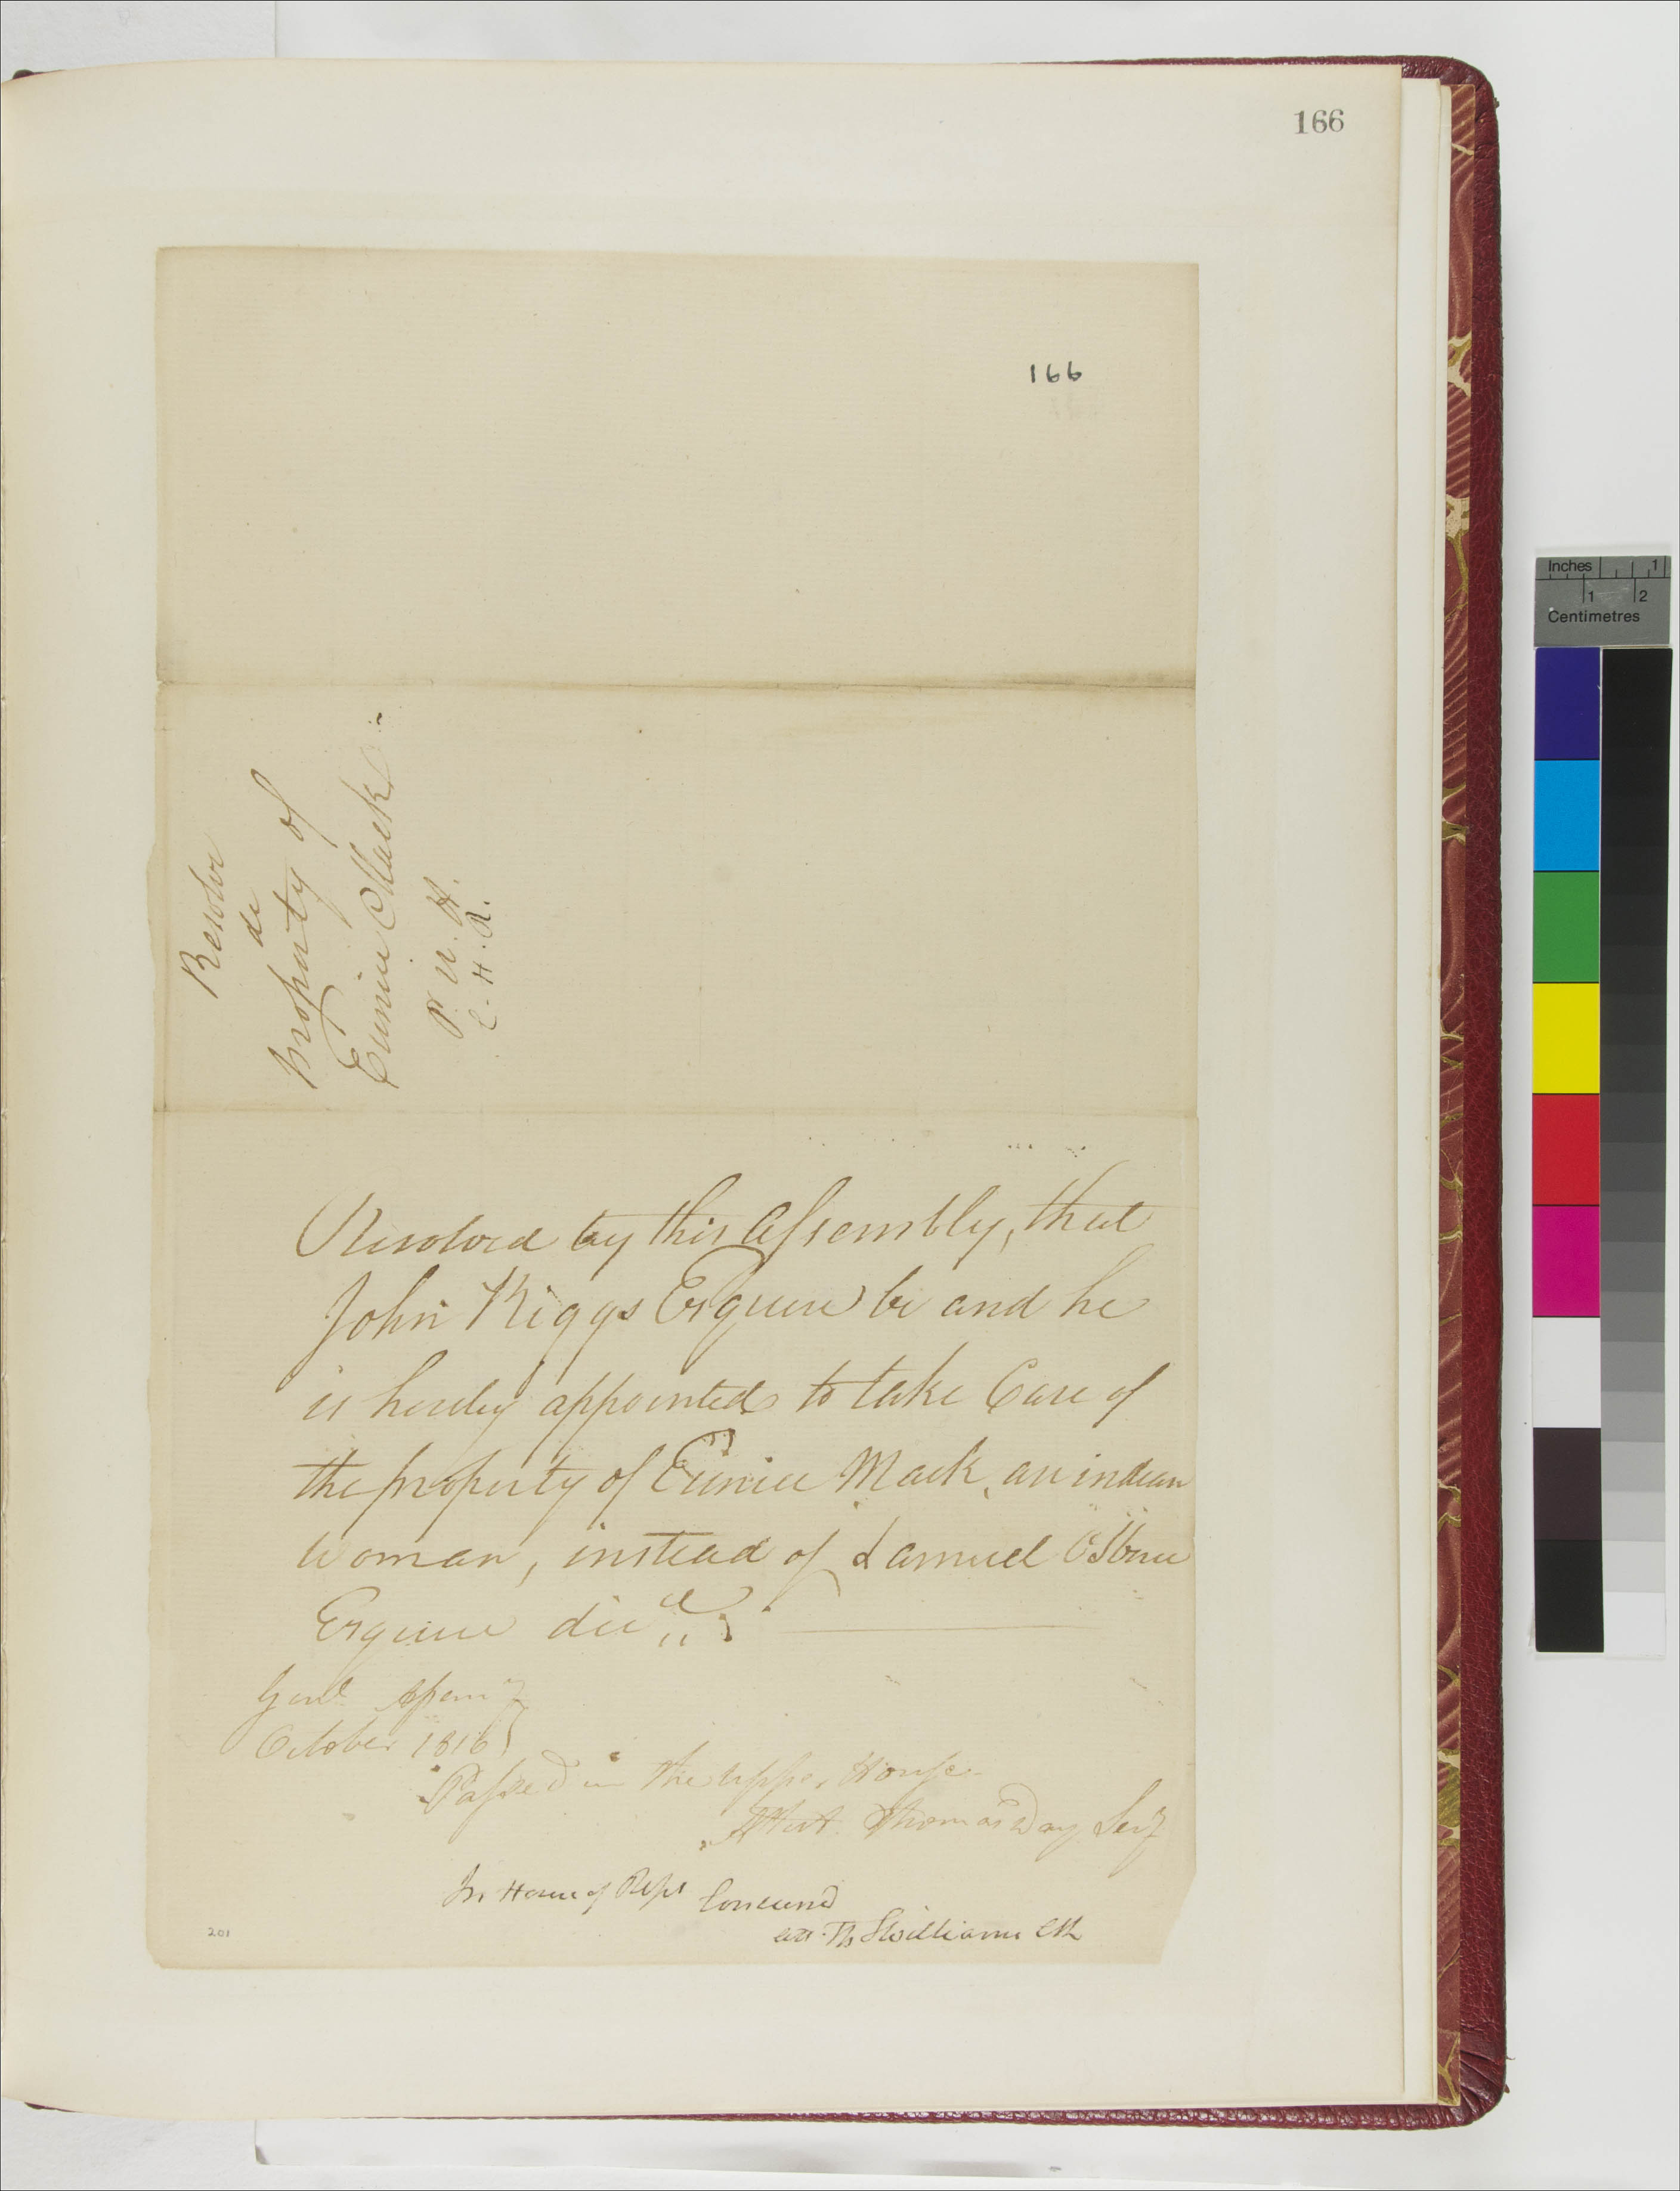 166
166
Resolve
de
property of
Eunice Mack
P. U. H.
C. H. R.
Resolved by this Assembly, that
John Riggs Esquire be and he
is hereby appointed to take Care of
the property of Eunice Mack, an indian
woman, instead of Samuel Osbun
Esquire diec<sup>d</sup>
Genl Assem
October 1816
Passed in the Upper House
Attest Thomas Day Secy
In House of Reps Concurrd
att. Th S Williams Clk
201
Inches 1
1 2
Centimetres